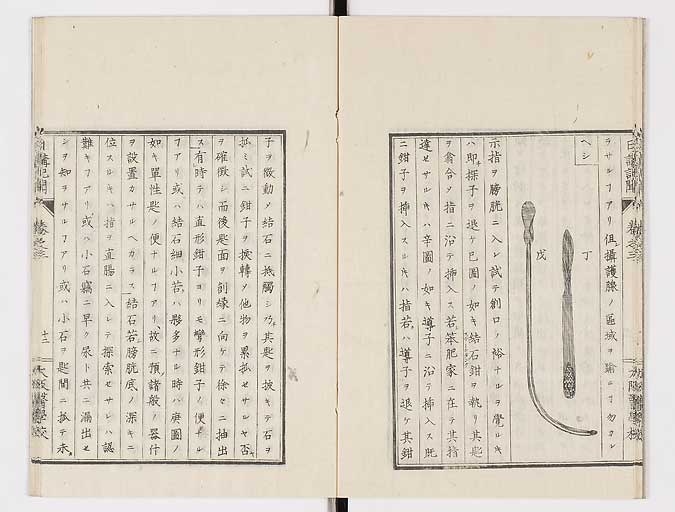 ラサルヿアリ但攝護腺ノ區域ヲ踰ユヿ勿カレ
ヘシ
丁
戊
示指ヲ膀胱ニ入レ試テ創口ノ裕ナルヲ覺ルキ
ハ即探子ヲ退ケ巳圖ノ如キ結石鉗ヲ執リ其匙
ヲ翕合シ指ニ沿テ挿入ス若笨肥家ニ在テ其指
達セサルキハ辛圖ノ如キ導子ニ沿テ挿入ス既
ニ鉗子ヲ挿入スルキハ指若ハ導子ヲ退ケ其鉗
日講記聞
卷之三
大阪醫學校
子ヲ微動シ結石ニ抵觸シ乃其匙ヲ披キテ石ヲ
孤ミ試ニ鉗子ヲ捩轉シ他物ヲ累孤セサルヤ否
ヲ確徴シ而後匙面ヲ創緣ニ向ケテ徐々ニ抽出
ス有時テハ直形鉗子ヨリモ彎形鉗子ノ便ナル
ヿアリ或ハ結石細小若ハ夥多ナル時ハ庚圖ノ
如キ單性匙ノ便ナルヿアリ故ニ預諸般ノ器什
ヲ設置カサルヘカラス結石若膀胱底ノ深キニ
位スルキハ指ヲ直腸ニ入レテ探索セサレハ認
難キヿアリ或ハ小石竊ニ早ク尿ト共ニ漏出セ
シヲ知ヲサルヿアリ或ハ小石ヲ匙間ニ孤テ未
日講記聞
卷之三
十二
大阪醫學校